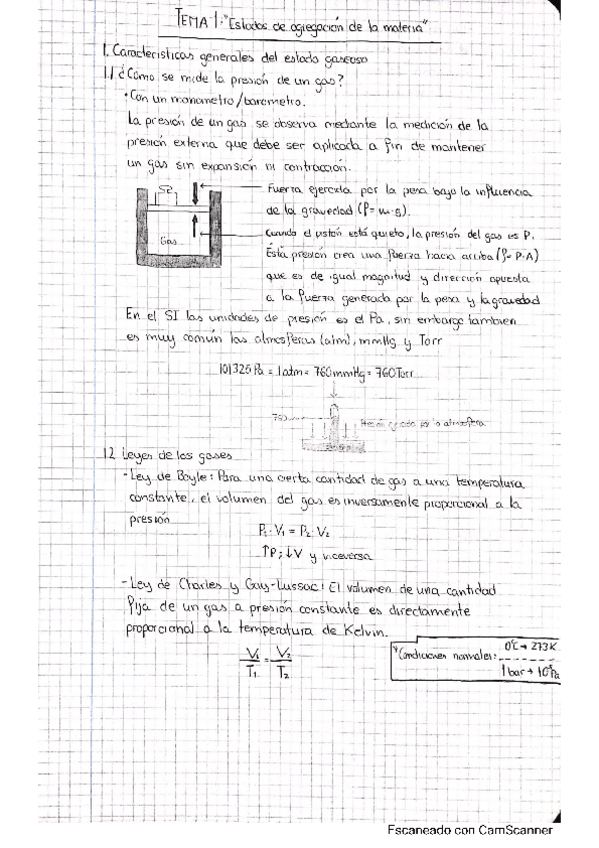 TEMA 1: "Estados de agregación de la materia"
1. Características generales del estado gaseoso
1.1 ¿Cómo se mide la presión de un gas?
• Con un manómetro/barómetro.
La presión de un gas se observa mediante la medición de la
presión externa que debe ser aplicada a fin de mantener
un gas sin expansión ni contracción.
Fuerza ejercida por la pesa bajo la influencia
de la gravedad (F=m·g).
Cuando el pistón está quieto, la presión del gas es P.
Gas
Ésta presión crea una fuerza hacia arriba (F=P·A)
que es de igual magnitud y dirección opuesta
a la fuerza generada por la pesa y la gravedad
En el SI las unidades de presión es el Pa, sin embargo también
es muy común las atmósferas (atm), mmHg y Torr
101325 Pa = 1 atm = 760 mmHg = 760 Torr
760
Presión ejercida por la atmósfera
1.2 Leyes de los gases
- Ley de Boyle: Para una cierta cantidad de gas a una temperatura
constante, el volumen del gas es inversamente proporcional a la
presión
P₁·V₁ = P₂·V₂
↑P; ↓V y viceversa
- Ley de Charles y Gay-Lussac: El volumen de una cantidad
fija de un gas a presión constante es directamente
proporcional a la temperatura de Kelvin.
V₁/T₁ = V₂/T₂
*Condiciones normales: 0°C → 273K
1 bar → 10⁵ Pa
Escaneado con CamScanner